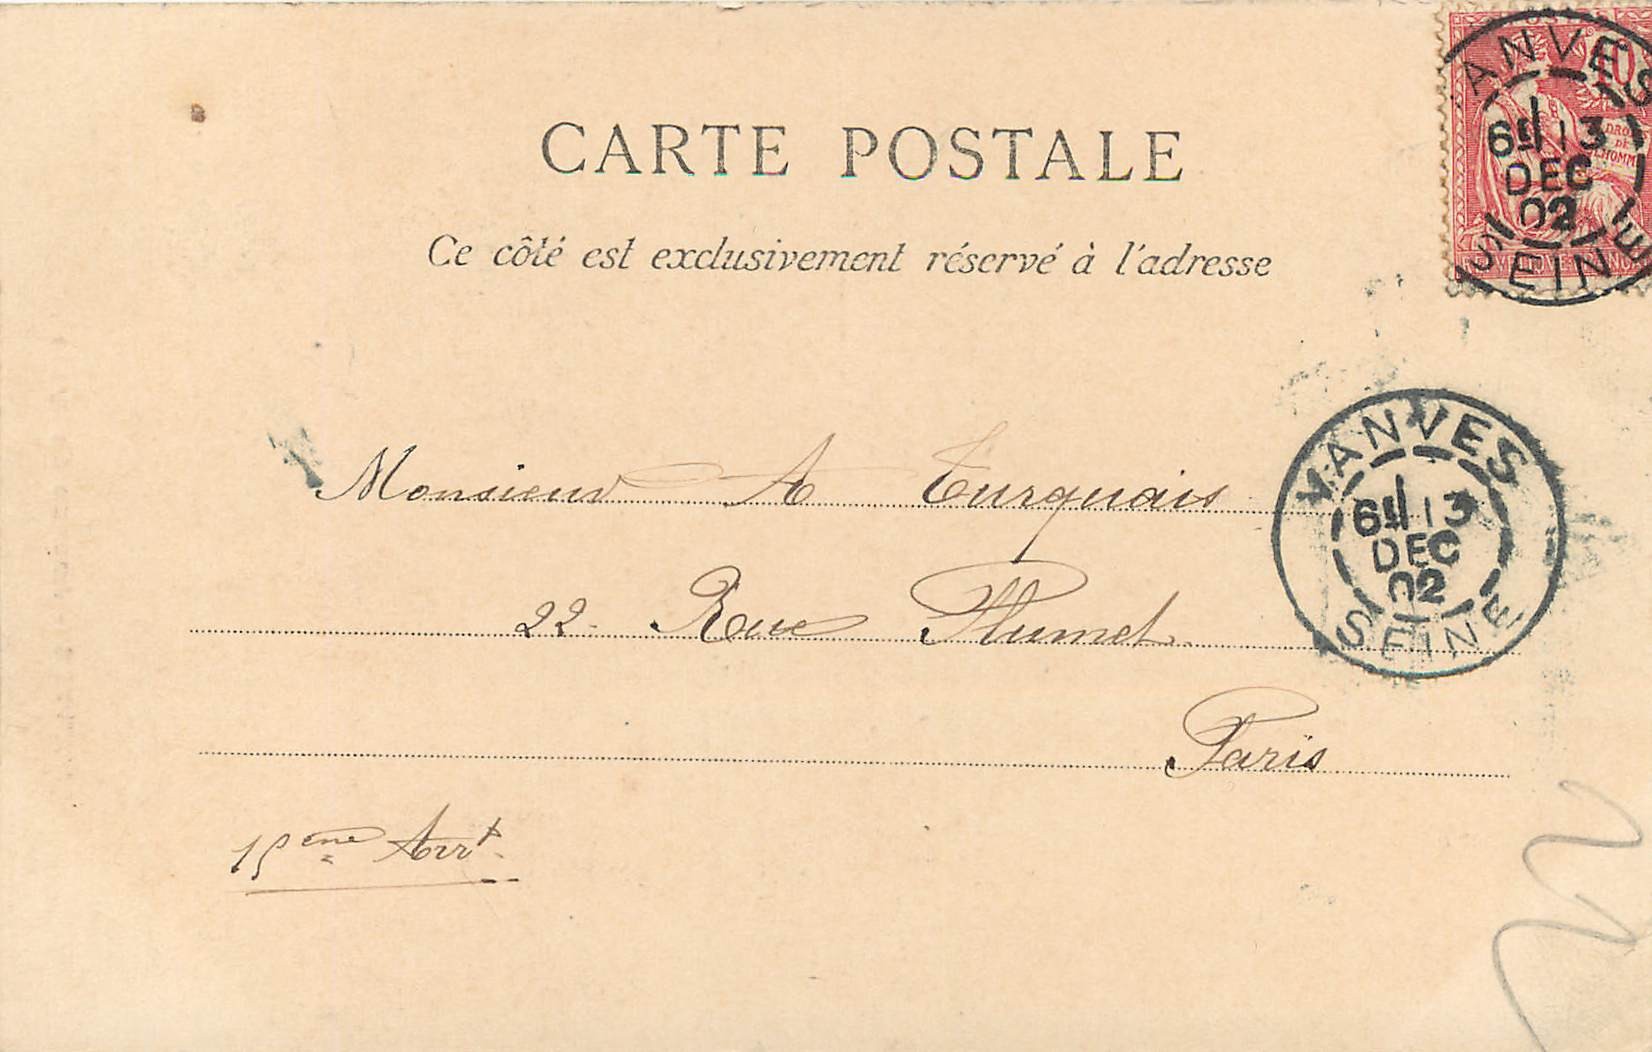 CARTE POSTALE
Ce côté est exclusivement réservé à l'adresse
10
DROITS
DE
L'HOMME
VANVES
6E 13
DEC
02
SEINE
VANVES
6E 13
DEC
02
SEINE
Monsieur A Turquais
22 Rue Plumet
Paris
15ème Arrt